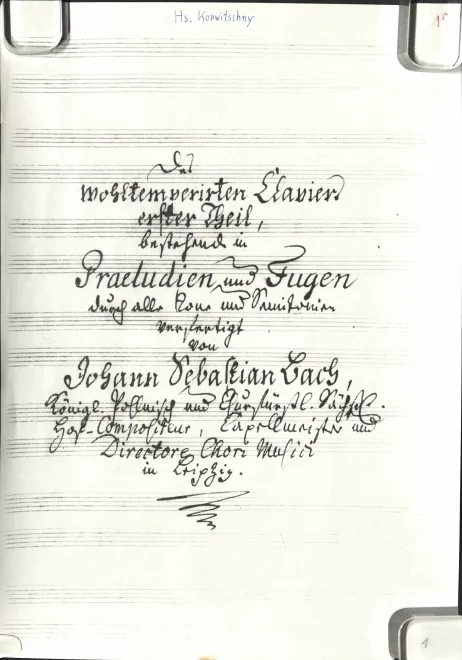 Hs. Konwitschny
1r
Des
wohltemperirten Claviers
erster Theil,
bestehend in
Praeludien und Fugen
durch alle Tone und Semitonien
verfertigt
von
Johann Sebastian Bach,
Königl. Pohlnisch und Churfürstl. Sächs.
Hof-Compositeur, Capellmeister und
Directore Chori Musici
in Leipzig.
1